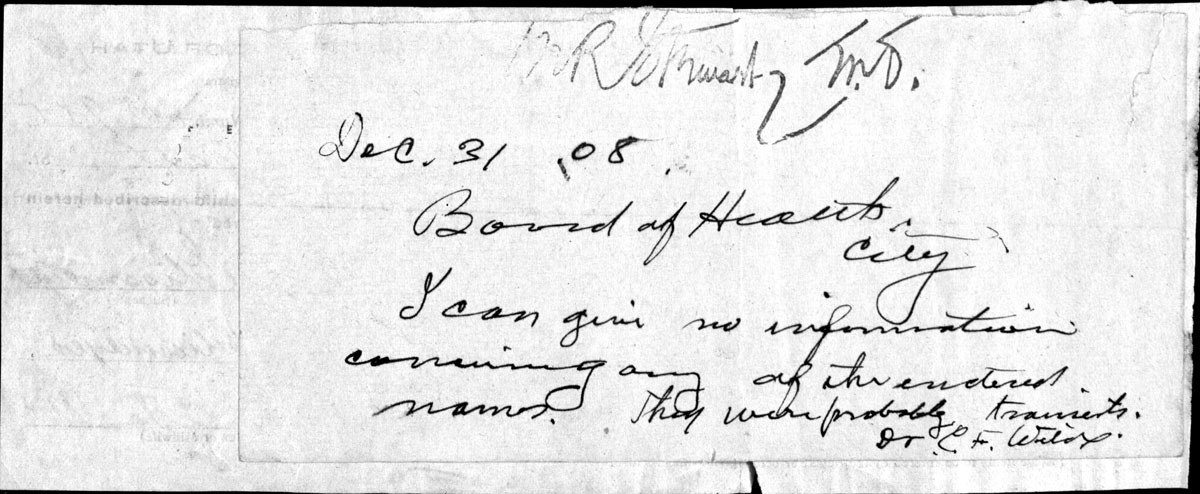 Stewart, M.D.
Dec. 31 , 08
Board of Health,
City
I can give no information
concerning any of the entered
names. They were probably transients.
Dr. E. F. Wilcox.
OF UTAH
child described herein